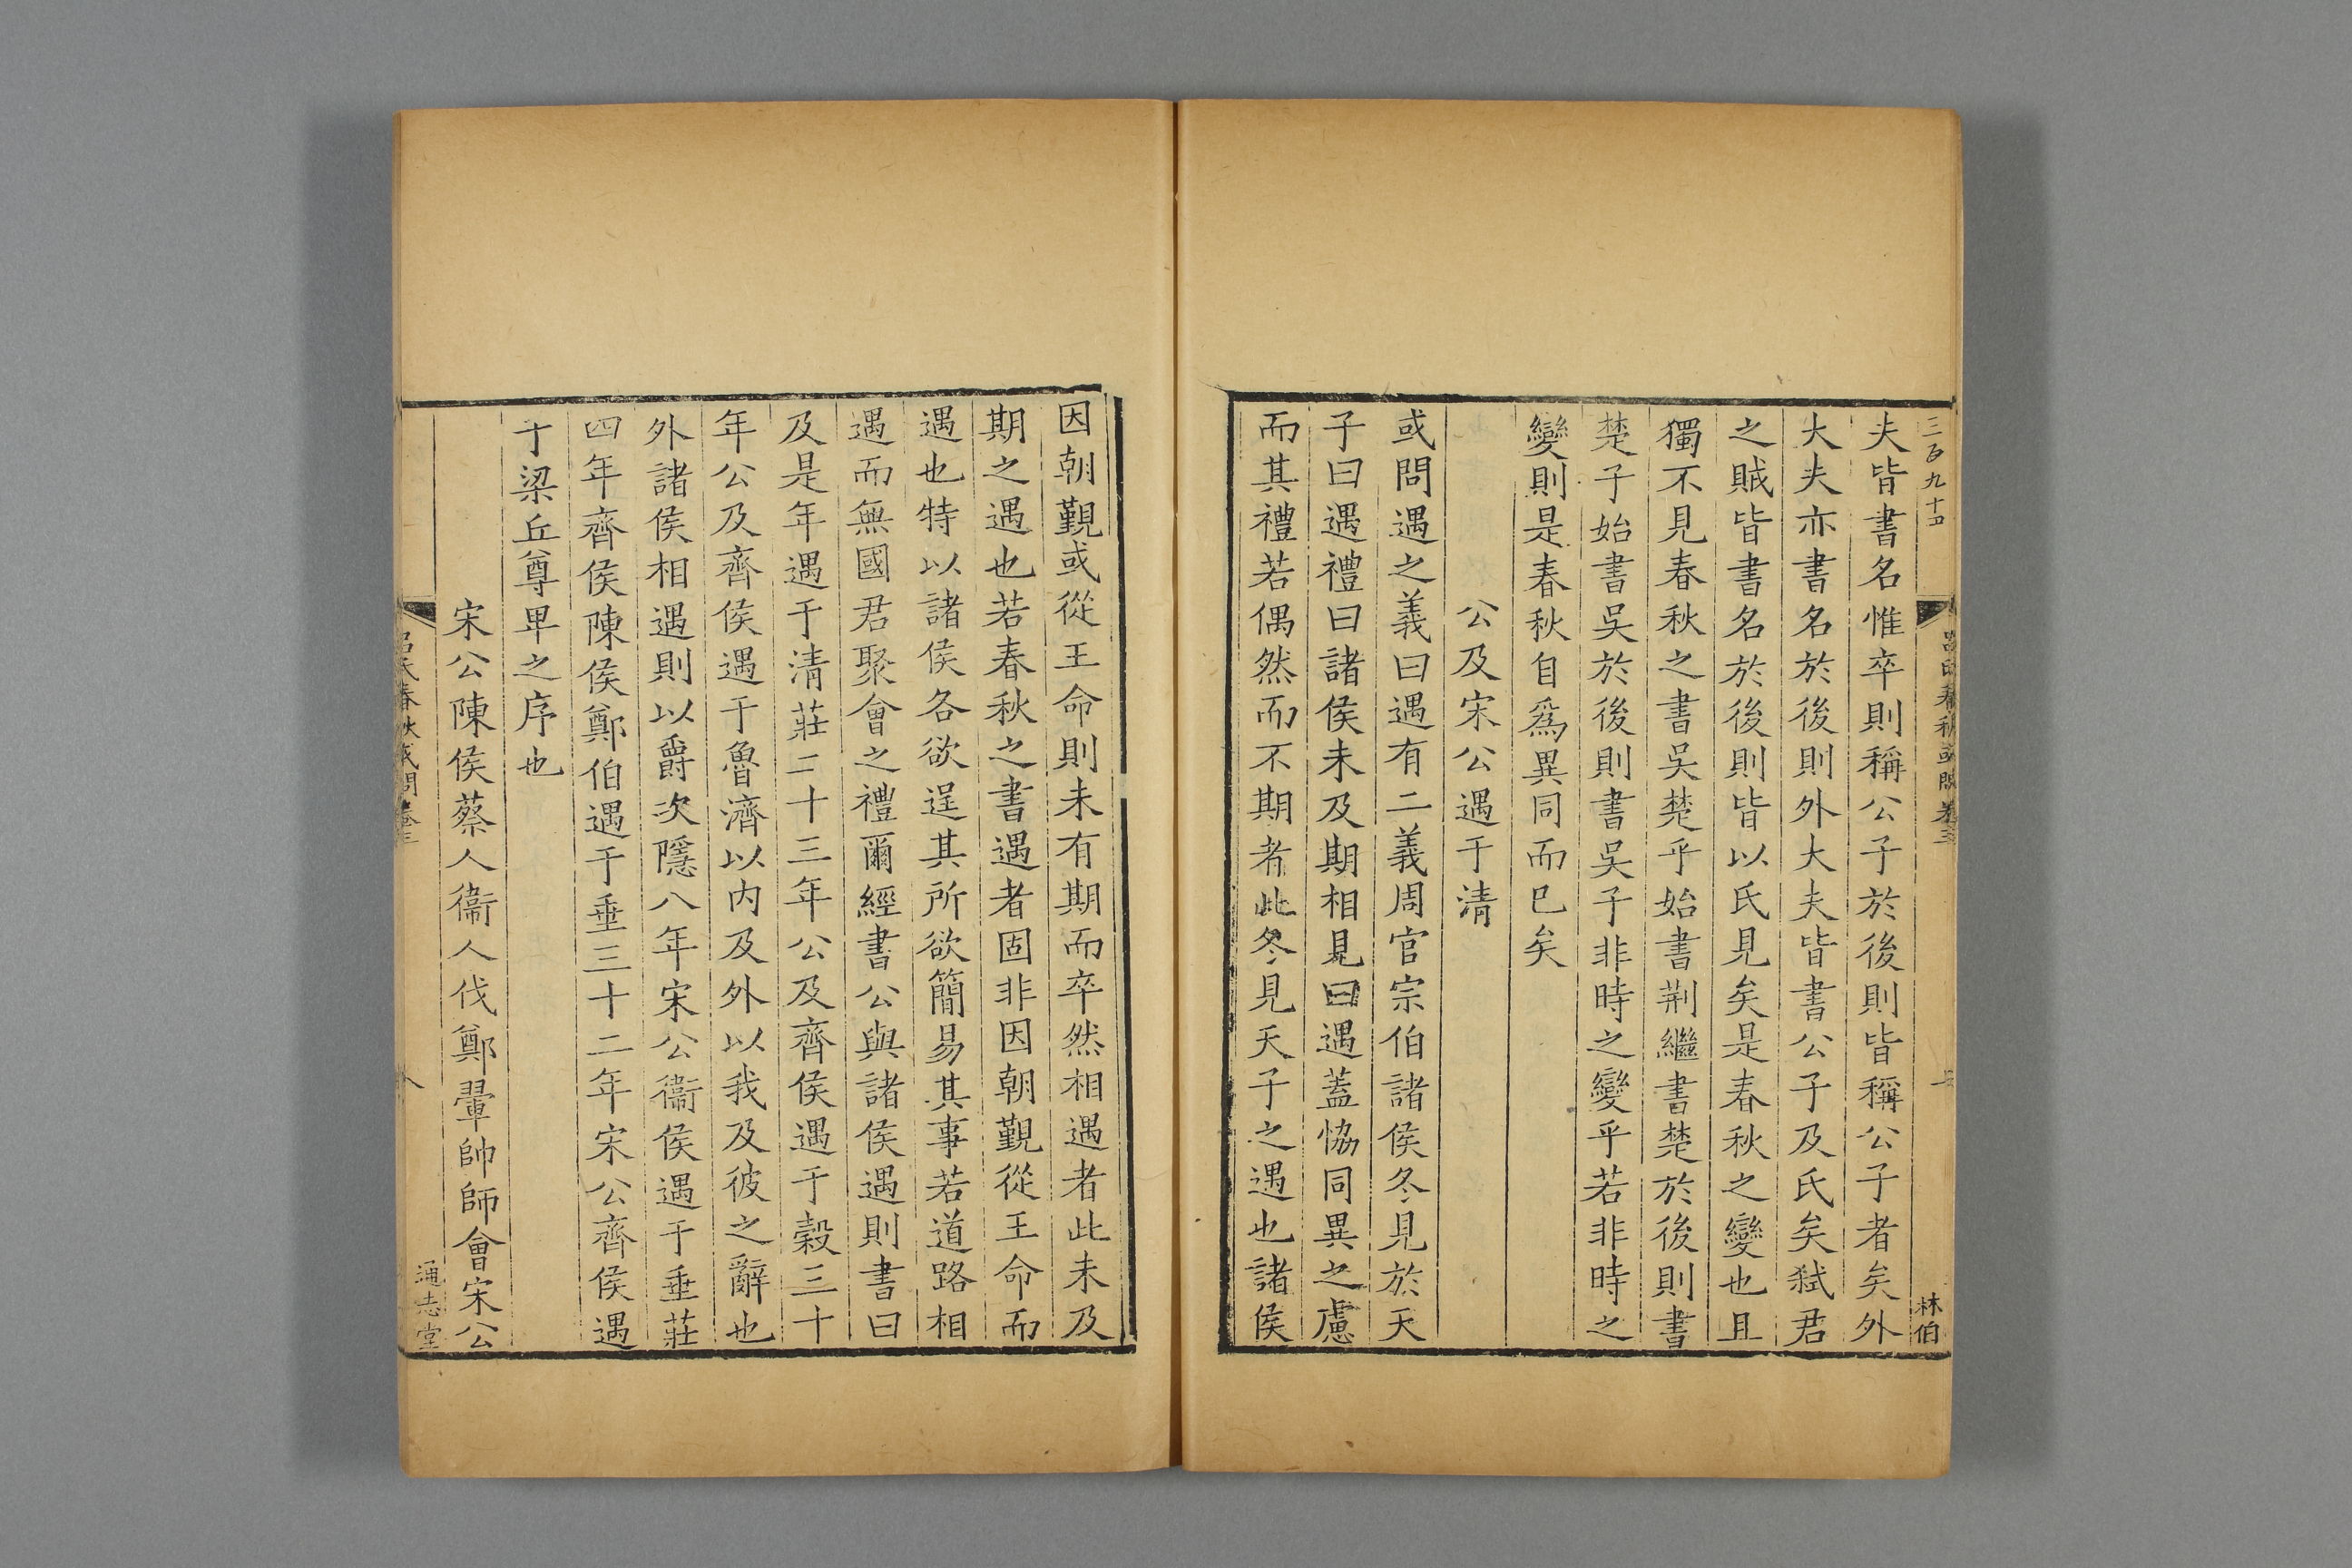 三百九十四
呂氏春秋或問卷三
林伯
夫皆書名惟卒則稱公子於後則皆稱公子者矣外
大夫亦書名於後則外大夫皆書公子及氏矣弑君
之賊皆書名於後則皆以氏見矣是春秋之變也且
獨不見春秋之書吳楚乎始書荆繼書楚於後則書
楚子始書吳於後則書吳子非時之變乎若非時之
變則是春秋自爲異同而巳矣
公及宋公遇于清
或問遇之義曰遇有二義周官宗伯諸侯冬見於天
子曰遇禮曰諸侯未及期相見曰遇蓋恊同異之慮
而其禮若偶然而不期者此冬見天子之遇也諸侯
因朝覲或從王命則未有期而卒然相遇者此未及
期之遇也若春秋之書遇者固非因朝覲從王命而
遇也特以諸侯各欲逞其所欲簡易其事若道路相
遇而無國君聚會之禮爾經書公與諸侯遇則書曰
及是年遇于清莊二十三年公及齊侯遇于穀三十
年公及齊侯遇于魯濟以内及外以我及彼之辭也
外諸侯相遇則以爵次隱八年宋公衞侯遇于垂莊
四年齊侯陳侯鄭伯遇于垂三十二年宋公齊侯遇
于梁丘尊卑之序也
宋公陳侯蔡人衞人伐鄭翬帥師會宋公
呂氏春秋或問卷三
八
通志堂